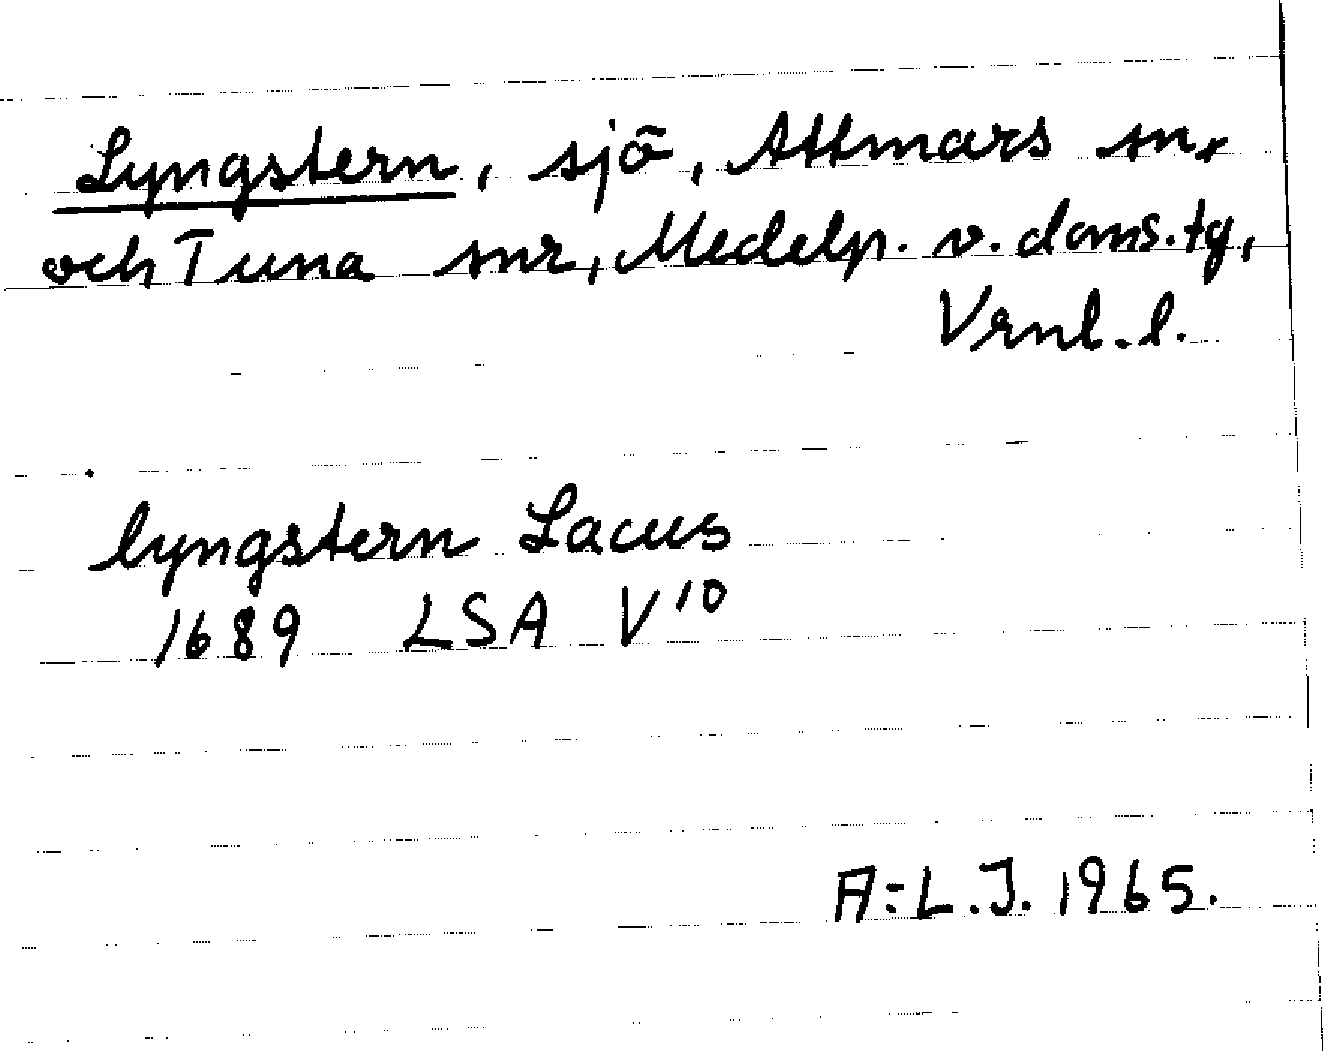 Lyngstern, sjö, Attmars sn,
och Tuna snr, Medelp. v. doms.tg,
Vrnl. l.
lyngstern Lacus
1689 LSA V¹⁰
A-L.J. 1965.